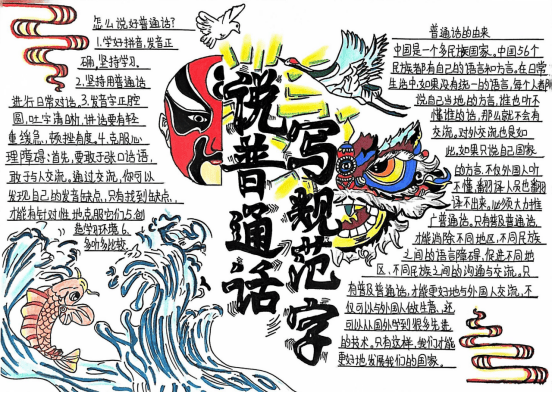 怎么说好普通话?
1.学好拼音,发音正
确,坚持学习。
2.坚持用普通话
进行日常对话。3.发音字正腔
圆,吐字清晰,讲话要有轻
重缓急,顿挫有度。4.克服心
理障碍:首先,要敢于张口话语,
敢于与人交流。通过交流,你可以
发现自己的发音缺点,只有找到缺点,
才能有针对性地克服它们。5.创
造学习环境。6.
多听多比较。
说普通话
写规范字
普通话的由来
中国是一个多民族国家。中国56个
民族都有自己的语言和方言。在日常
生活中,如果没有统一的语言,每个人都用
说自己当地的方言,谁也听不
懂谁的话,那么就不会有
交流。对外交流也是如
此,如果只说自己国家
的方言,不仅外国人听
不懂,翻译人员也翻
译不出来。必须大力推
广普通话。只有普及普通话,
才能消除不同地区、不同民族
之间的语言障碍,促进不同地
区、不同民族之间的沟通与交流。只
有普及普通话,才能更好地与外国人交流。不
仅可以与外国人做生意,还
可以从国外学到很多先进
的技术。只有这样,我们才能
更好地发展我们的国家。